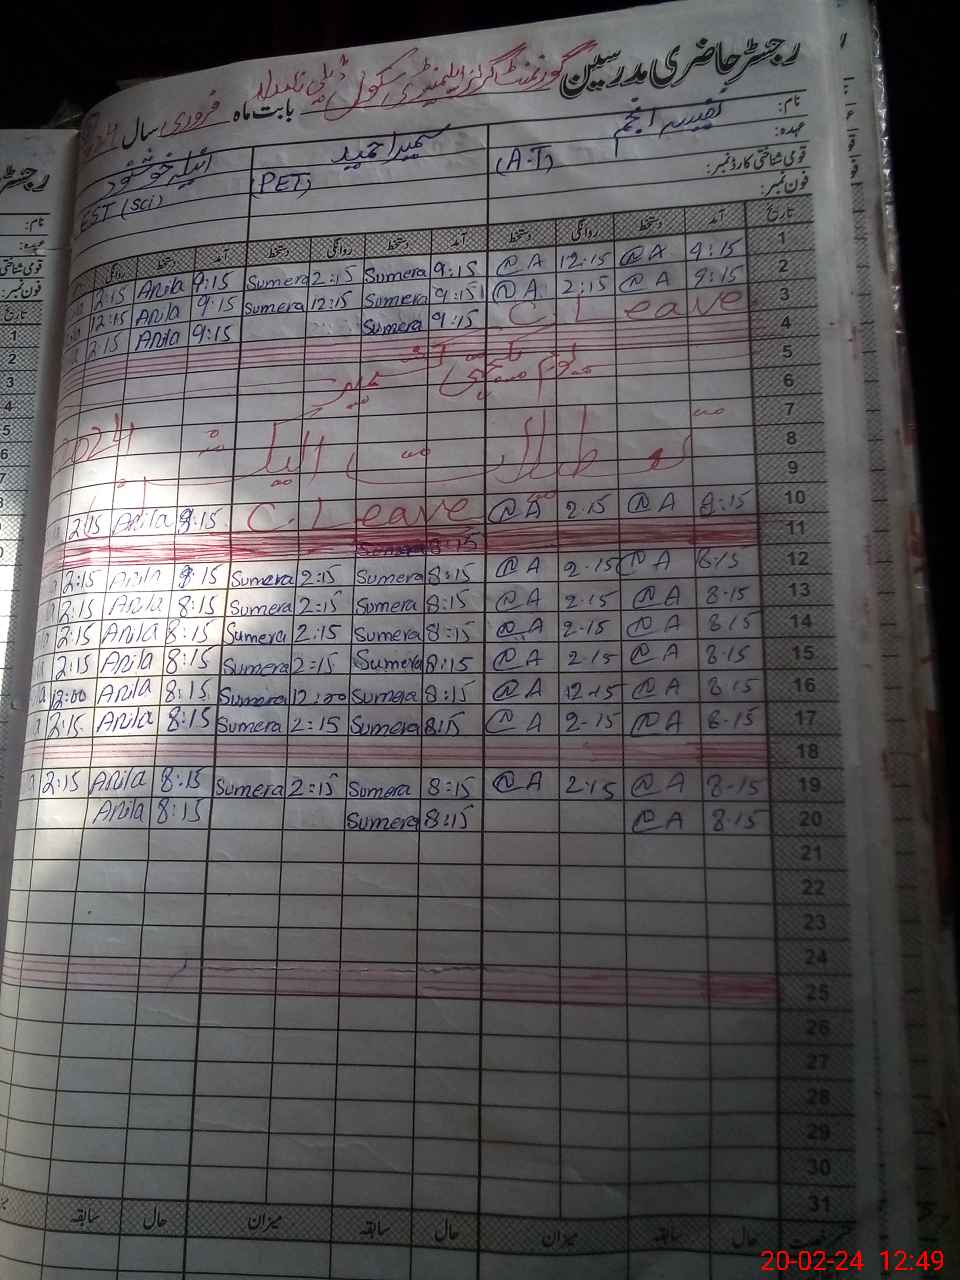 رجسٹر حاضری مدرسین گورنمنٹ گرلز ایلیمنٹری سکول
بابت ماہ فروری سال
نام: نفیسہ انجم سمیرا حمید انیلہ خوشنود
عہدہ: (A.T) (PET) EST (Sci)
قومی شناختی کارڈ نمبر:
فون نمبر:
تاریخ آمد دستخط روانگی دستخط آمد دستخط روانگی دستخط آمد دستخط روانگی
1 9:15 @ A 12:15 @ A 9:15 Sumera 2:15 Sumera 9:15 Anila 2:15
2 9:15 @ A 2:15 @ A 9:15 Sumera 12:15 Sumera 9:15 Anila 12:15
3 C. Leave 9:15 Sumera 9:15 Anila 2:15
4
5 یوم یکجہتی کشمیر
6
7
8 تعطیلات 2024
9
10 9:15 @ A 2.15 @ A C. Leave 9:15 Anila 2:15
11 Sumera 8:15
12 8:15 @ A 2.15 @ A 8:15 Sumera 2:15 Sumera 9:15 Anila 2:15
13 8.15 @ A 2.15 @ A 8:15 Sumera 2:15 Sumera 8:15 Anila 2:15
14 8.15 @ A 2.15 @ A 8:15 Sumera 2:15 Sumera 8:15 Anila 2:15
15 8.15 @ A 2.15 @ A 8:15 Sumera 2:15 Sumera 8:15 Anila 2:15
16 8.15 @ A 12.15 @ A 8:15 Sumera 12:00 Sumera 8:15 Anila 12:00
17 8.15 @ A 2.15 @ A 8:15 Sumera 2:15 Sumera 8:15 Anila 2:15
18
19 8.15 @ A 2.15 @ A 8:15 Sumera 2:15 Sumera 8:15 Anila 2:15
20 8.15 @ A 8:15 Sumera 8:15 Anila
21
22
23
24
25
26
27
28
29
30
31
حال سابقہ میزان حال سابقہ میزان حال سابقہ
رجسٹر
نام:
عہدہ:
قومی شناختی
فون نمبر:
تاریخ
1
2
3
4
5
6
7
8
20-02-24 12:49